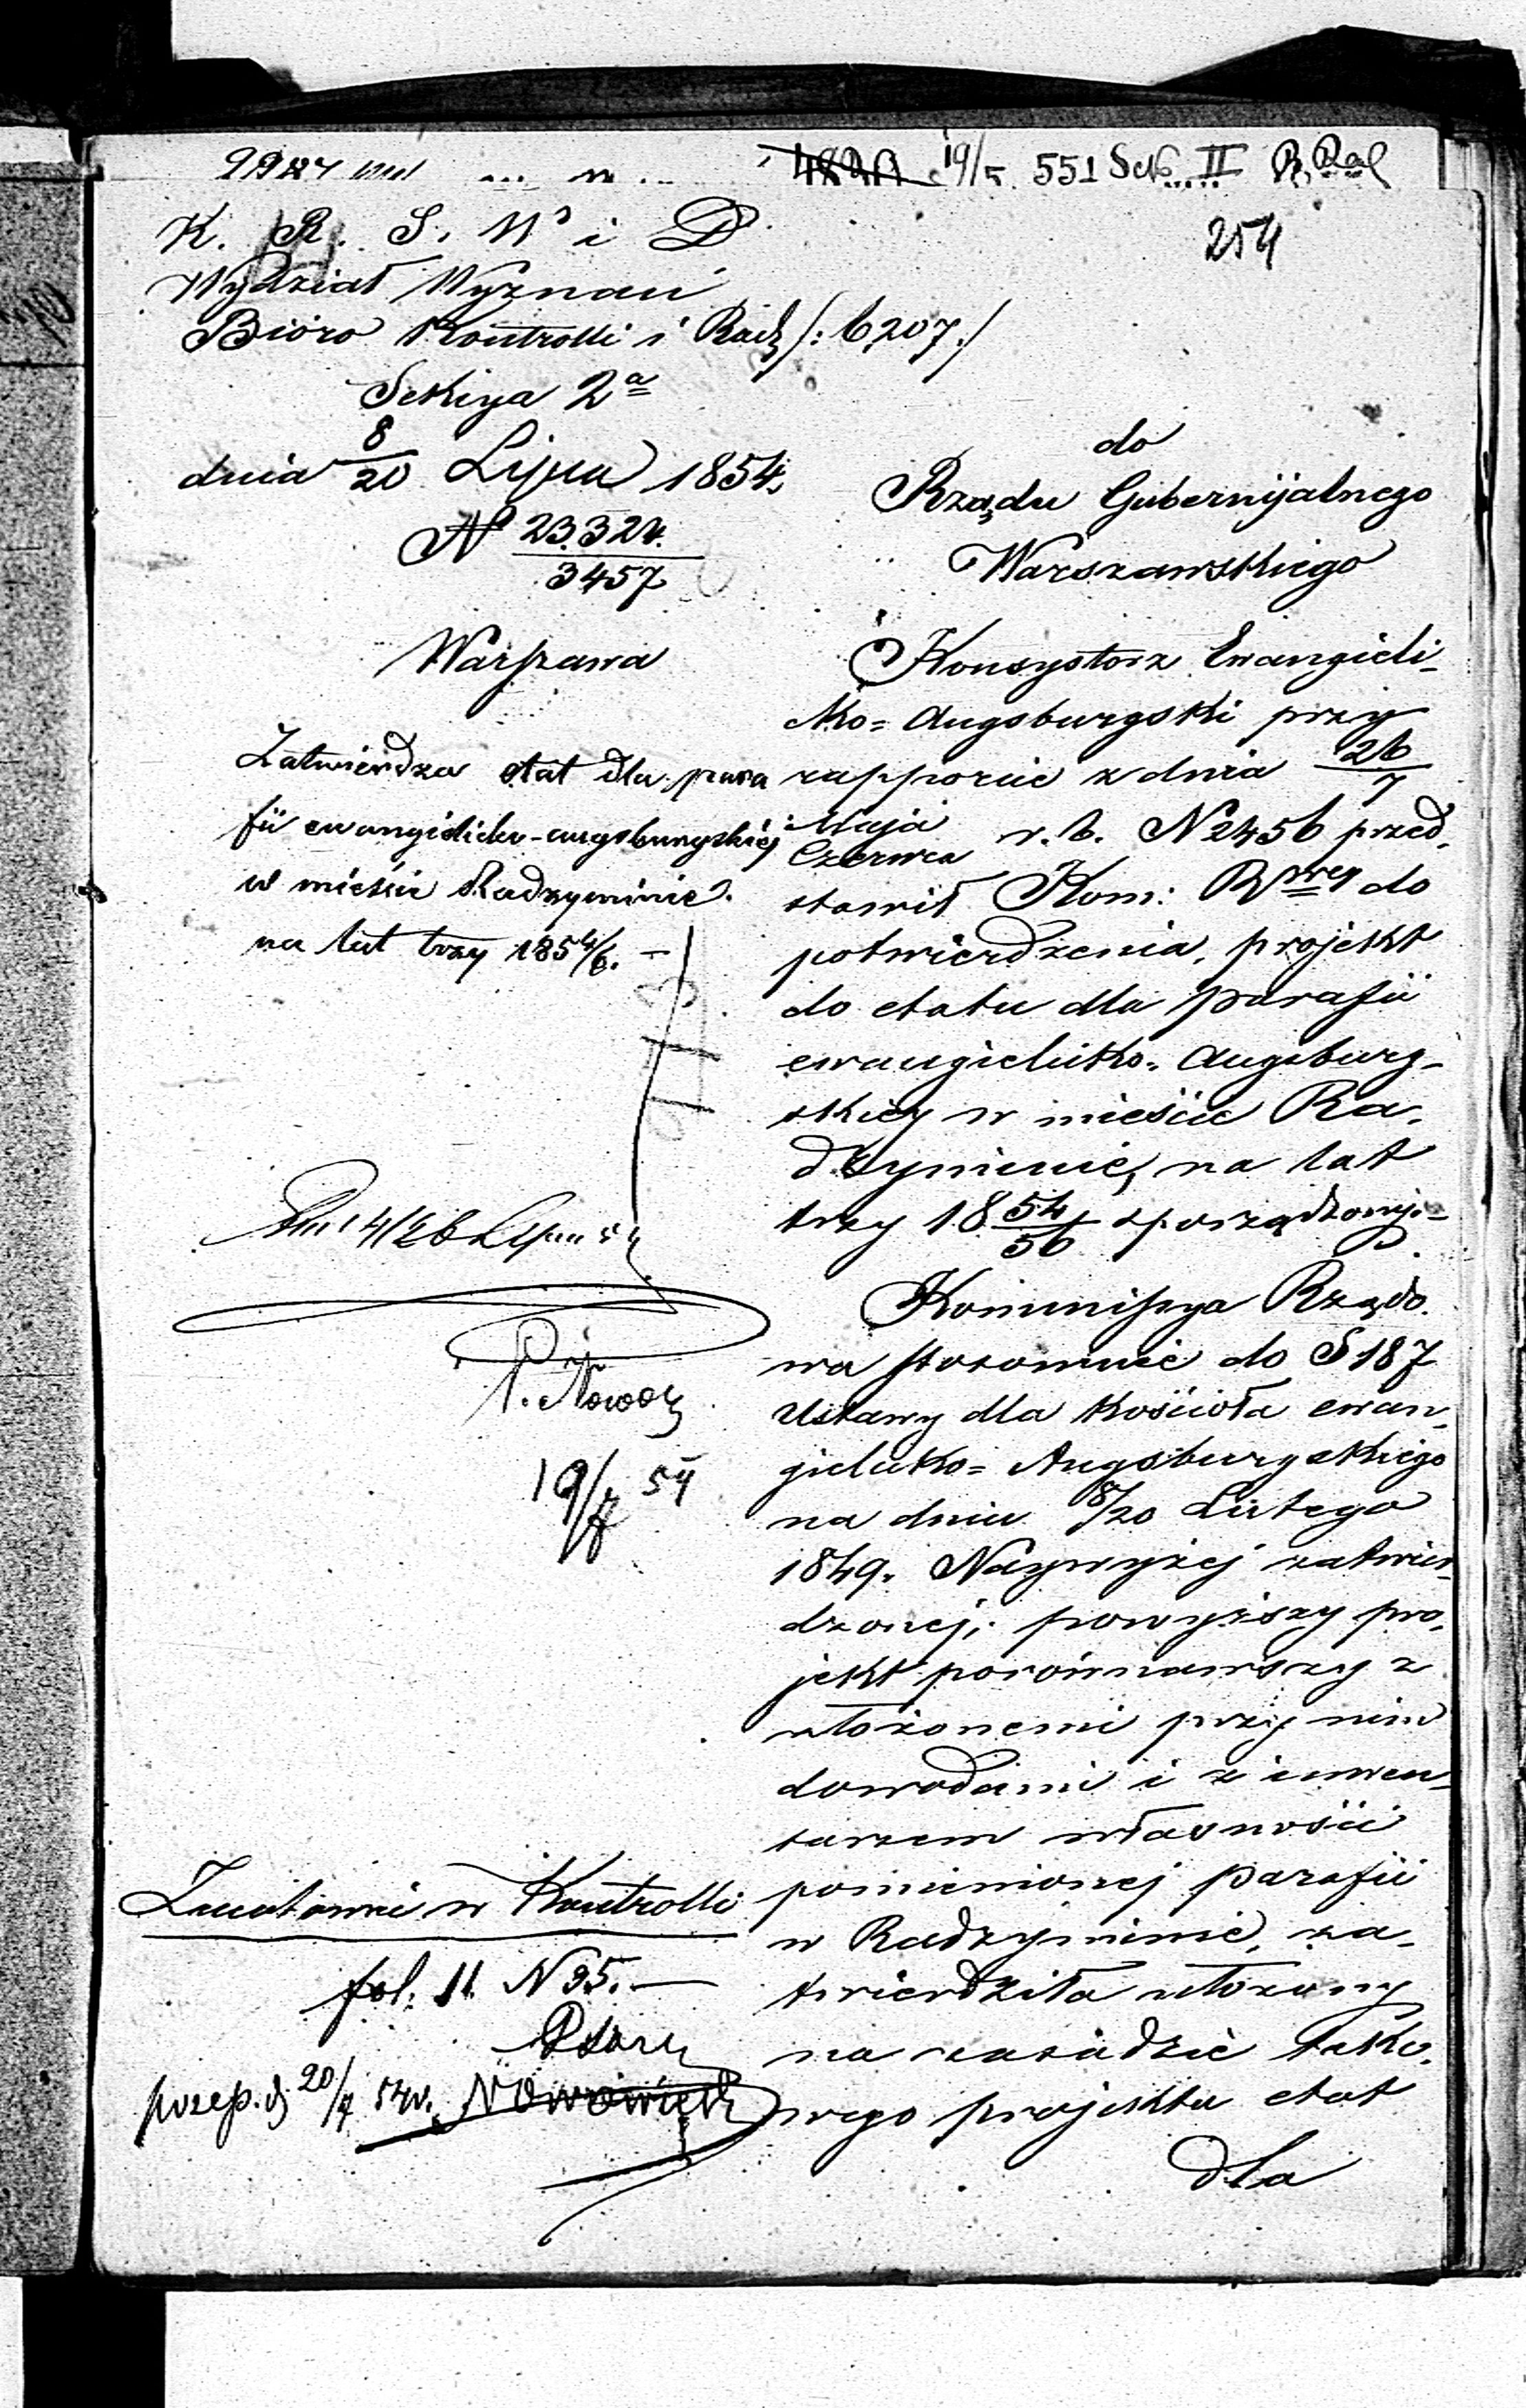 19/5. 551 Sek. II
254
K. R. S. W. i D.
Wydział Wyznań
Bióro Kontrolli i Rach /: 6,207./
Sekcya 2ª
dnia 8/20 Lipca 1854.
N 23.324./3457
Warszawa
Zatwierdza etat dla para
fii ewangielicko-augsburgskiéj
w mieście Radzyminie
na lat trzy 1854/6. –
14/26 Lipca 54
P. Nowos
19/7 54
Zanotowano w Kontrolli
fol: 11 N 95. –
przep. d. 20/7 54 r.
do
Rządu Gubernijalnego
Warszawskiego
Konsystorz Ewangieli-
cko-Augsburgski przy
rapporcie z dnia 26/7
Maja/Czerwca r. b. N 2456 przed-
stawił Kom: Rząwey do
potwierdzenia, projekt
do etatu dla parafii
ewangielicko-Augsburg-
skiey w mieście Ra-
dzyminie, na lat
trzy 18 54/56 sporządzony. –
Kommissya Rządo-
wa stosownie do § 187
Ustawy dla Kościoła ewan-
gielicko-Augsburgskiego
na dniu 8/20 Lutego
1849. Naywyżej zatwier-
dzonej, powyższy pro-
jekt porównawszy z
złożonemi przy nim
dowodami i z inwen-
tarzem własności
pomienionej parafii
w Radzyminie, za-
twierdziła ułożony
na zasadzie tako-
wego projektu etat
dla